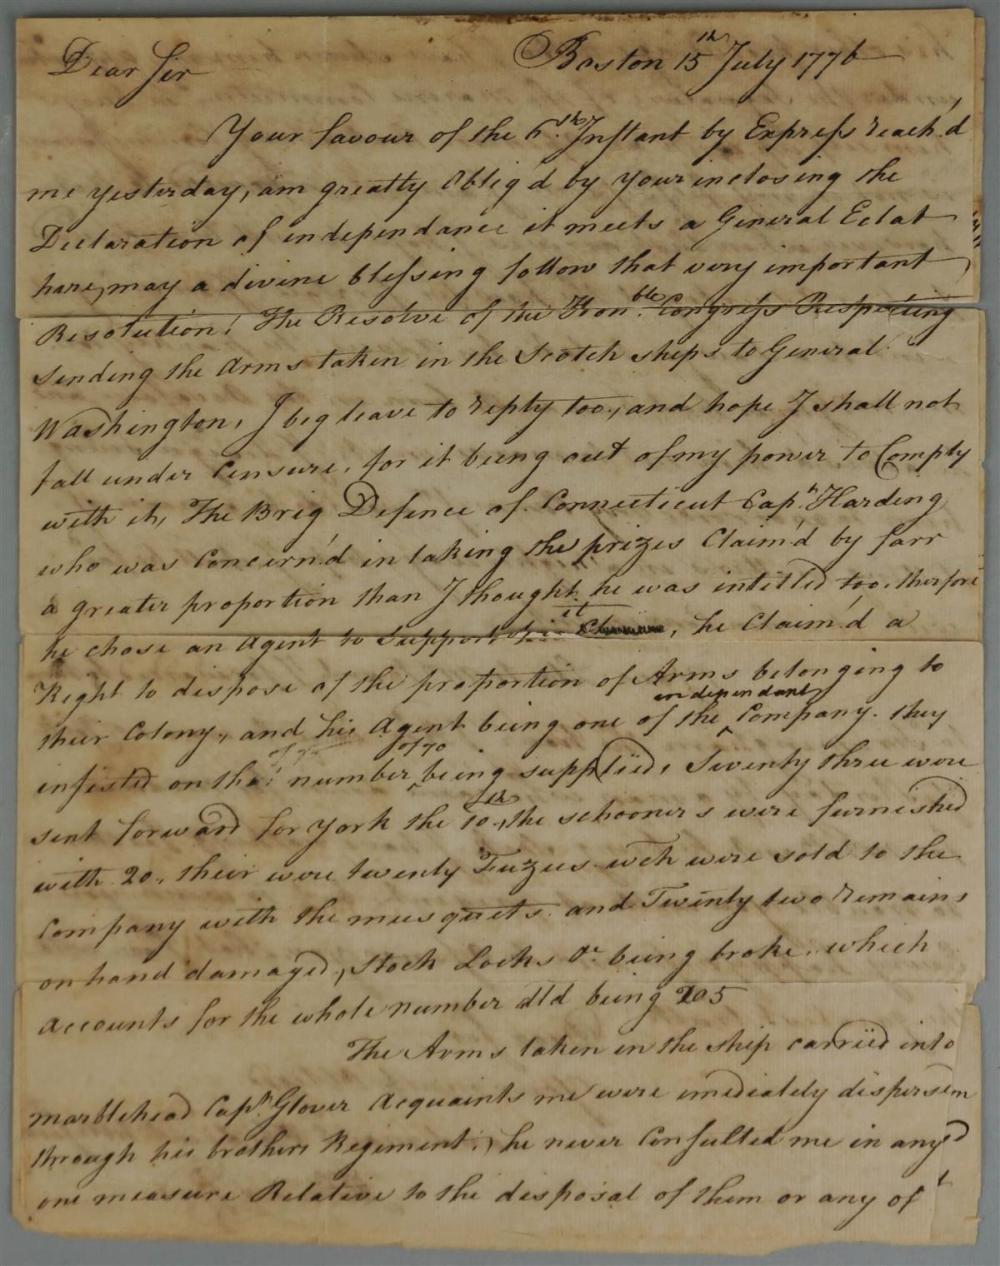 Boston 15th July 1776
Dear Sir
Your favour of the 6th Instant by Express reach'd
me yesterday, am greatly Oblig'd by your inclosing the
Declaration of independance it meets a General Eclat
here, may a divine blessing follow that very important
Resolution! The Resolve of the Honble Congress Respecting
sending the Arms taken in the Scotch ships to General
Washington, I beg leave to reply too, and hope I shall not
fall under Censure, for it being out of my power to Comply
with it, The Brig Defence of Connecticut Capt Harding
who was Concern'd in taking the prizes Claim'd by farr
a greater proportion than I thought he was intitled too, therfore
he chose an Agent to Support it, he Claim'd a
Right to dispose of the proportion of Arms belonging to
their Colony, and his Agent being one of the independant Company they
insisted on the number of 70 being supplied, Twenty three were
sent forward for York the 10th, the schooners were furnished
with 20, their were twenty Fuzees wch were sold to the
Company with the musquets and Twenty two remains
on hand damaged, Stock Locks &c being broke, which
accounts for the whole number dld being 205
The Arms taken in the ship carried into
marblehead Capt Glover Acquaints me were imediately dispersed
through his brothers Regiment, he never Consulted me in any
one measure Relative to the disposal of them or any of